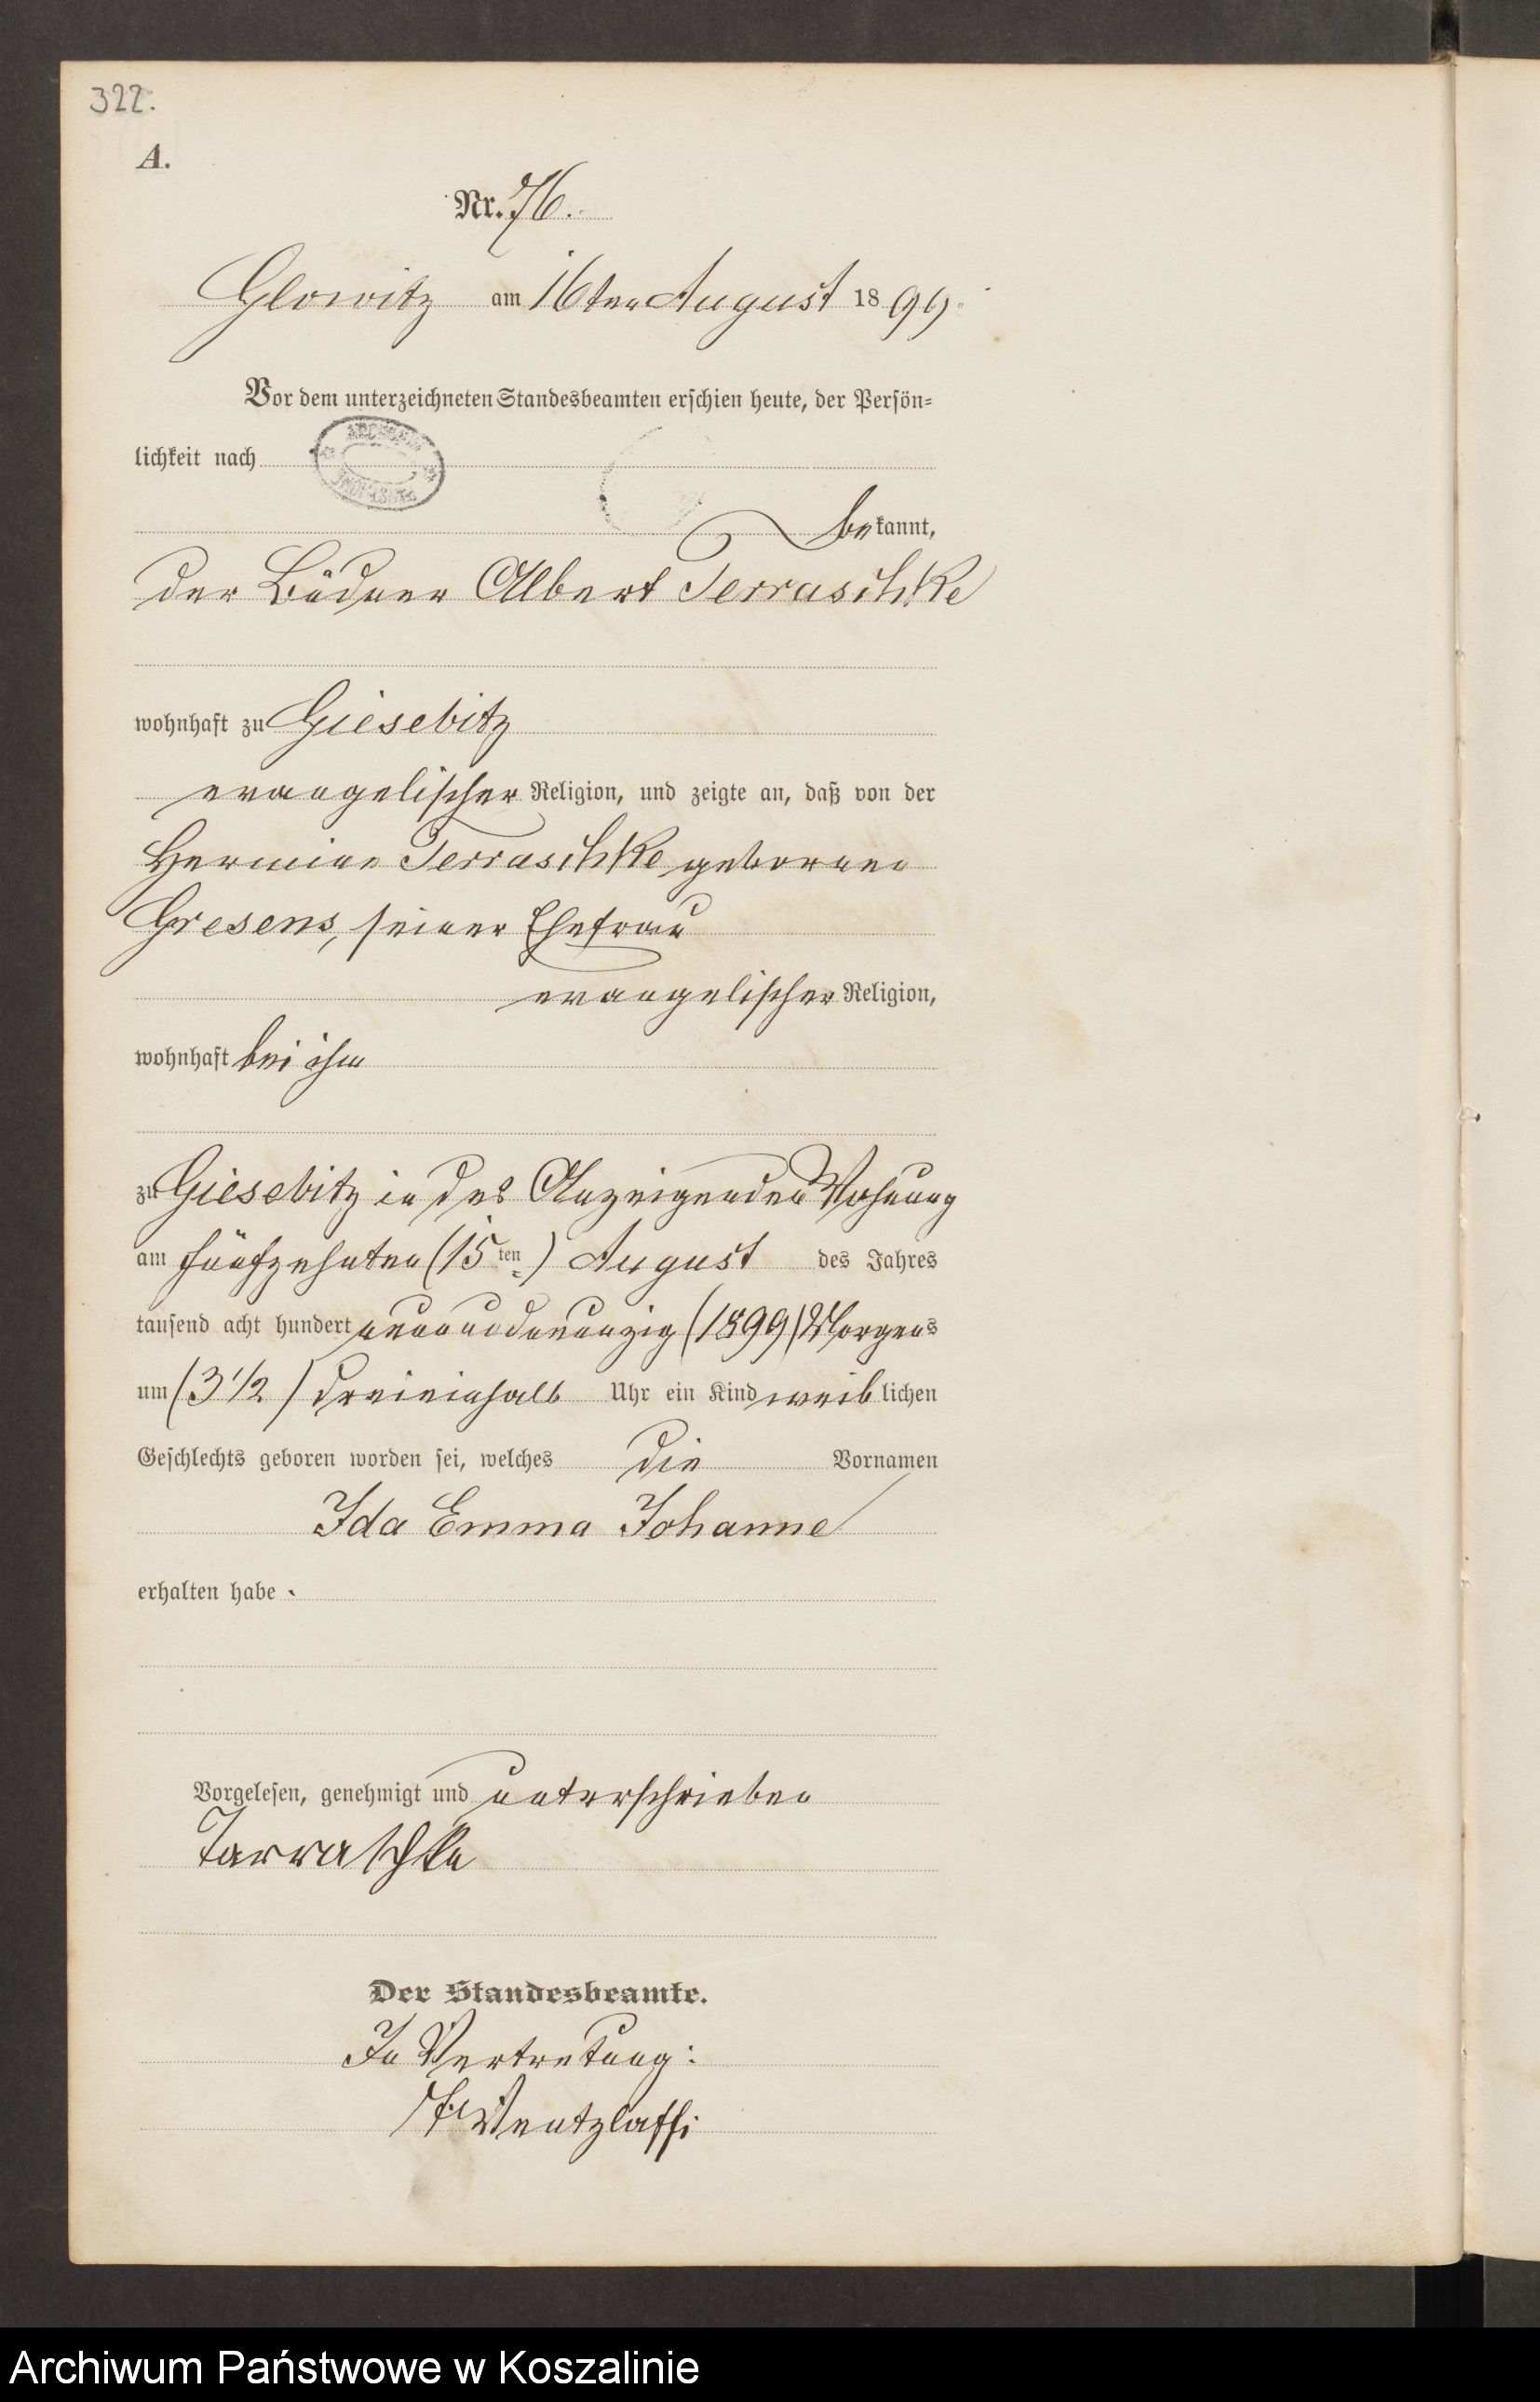 322.
A.
Nr. 76.
Glowitz am 16ten August 1899.
Vor dem unterzeichneten Standesbeamten erschien heute, der Persön=
lichkeit nach
bekannt,
der Büdner Albert Terraschke
wohnhaft zu Giesebitz
evangelischer Religion, und zeigte an, daß von der
Hermine Terraschke geborenen
Gresens, seiner Ehefrau
evangelischer Religion,
wohnhaft bei ihm
zu Giesebitz in des Anzeigenden Wohnung
am fünfzehnten (15ten) August des Jahres
tausend acht hundert neunundneunzig (1899) Morgens
um (3 1/2) dreieinhalb Uhr ein Kind weiblichen
Geschlechts geboren worden sei, welches die Vornamen
Ida Emma Johanne
erhalten habe.
Vorgelesen, genehmigt und unterschrieben
Tarraschke
Der Standesbeamte.
In Vertretung:
Wentzlaff
Archiwum Państwowe w Koszalinie